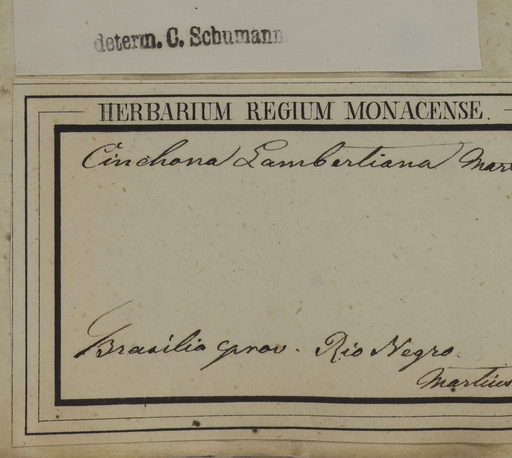 determ. C. Schumann.
HERBARIUM REGIUM MONACENSE.
Cinchona Lambertiana Mart
Brasilia prov. Rio Negro.
Martius